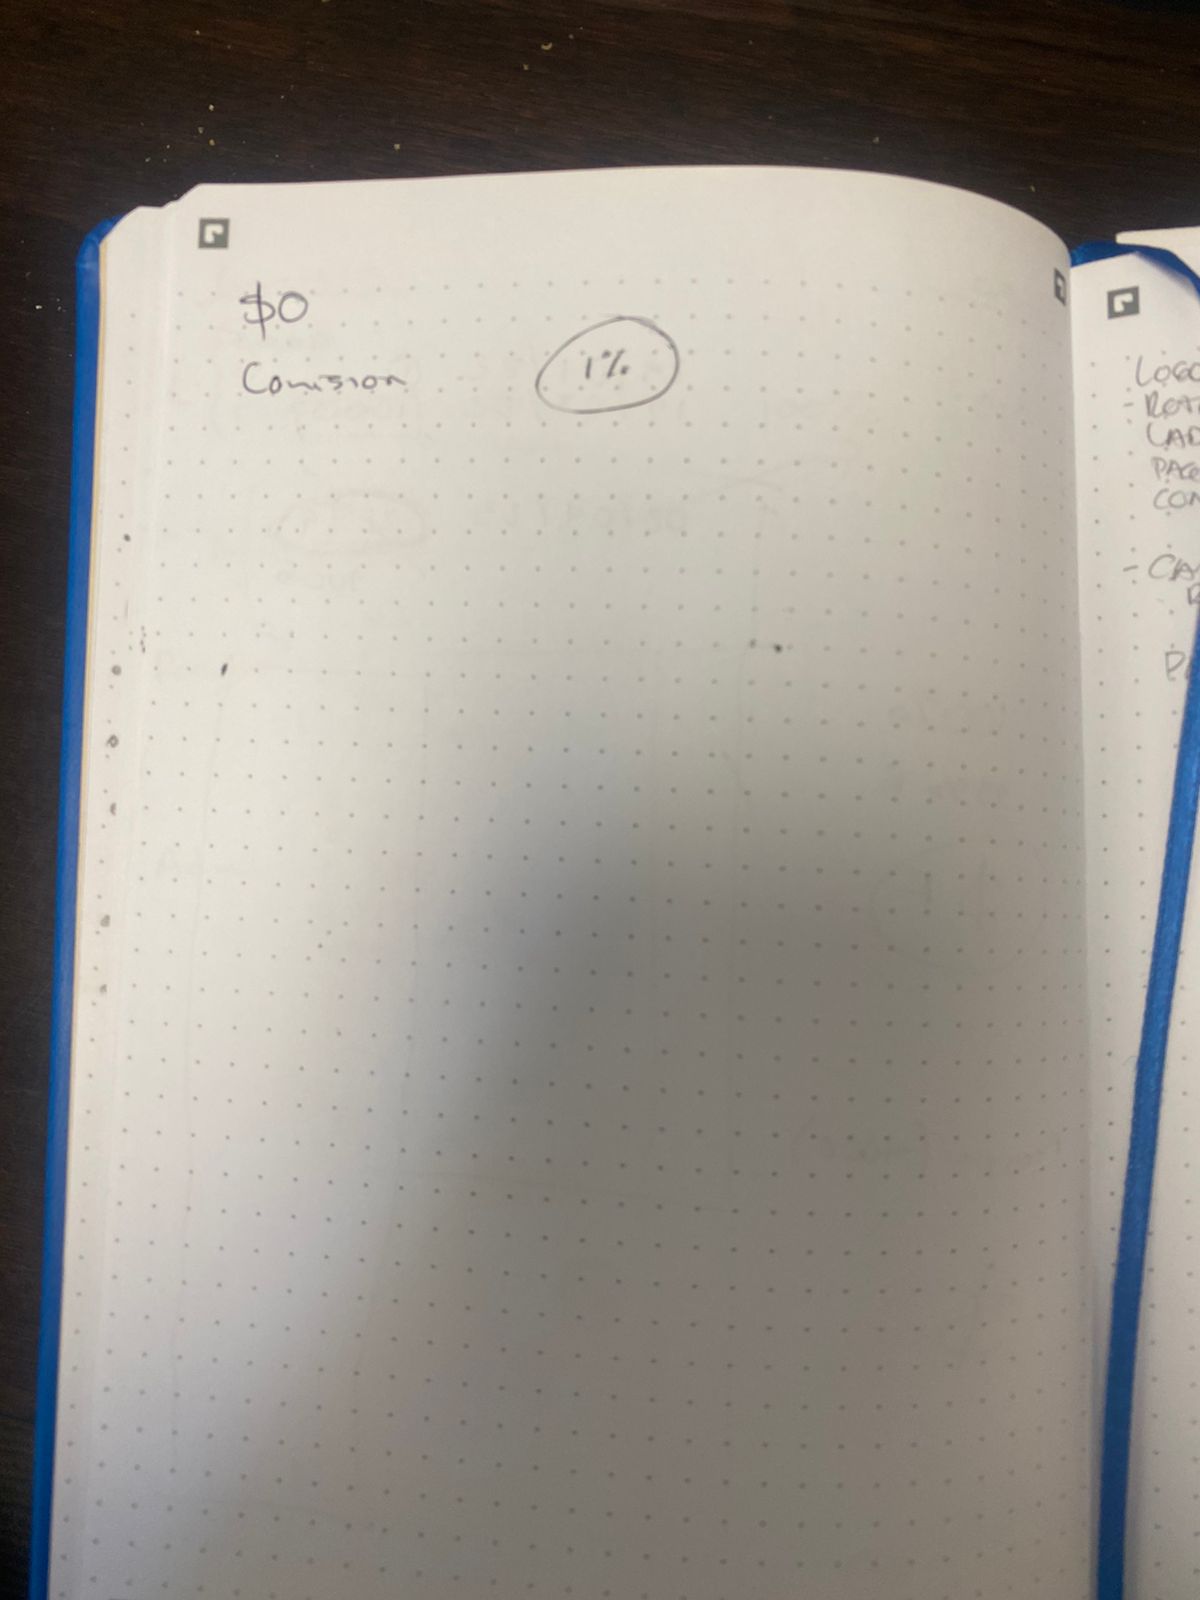 $0
Comision
1%
LOGO
- ROT
LAD
PAG
CON
- CA